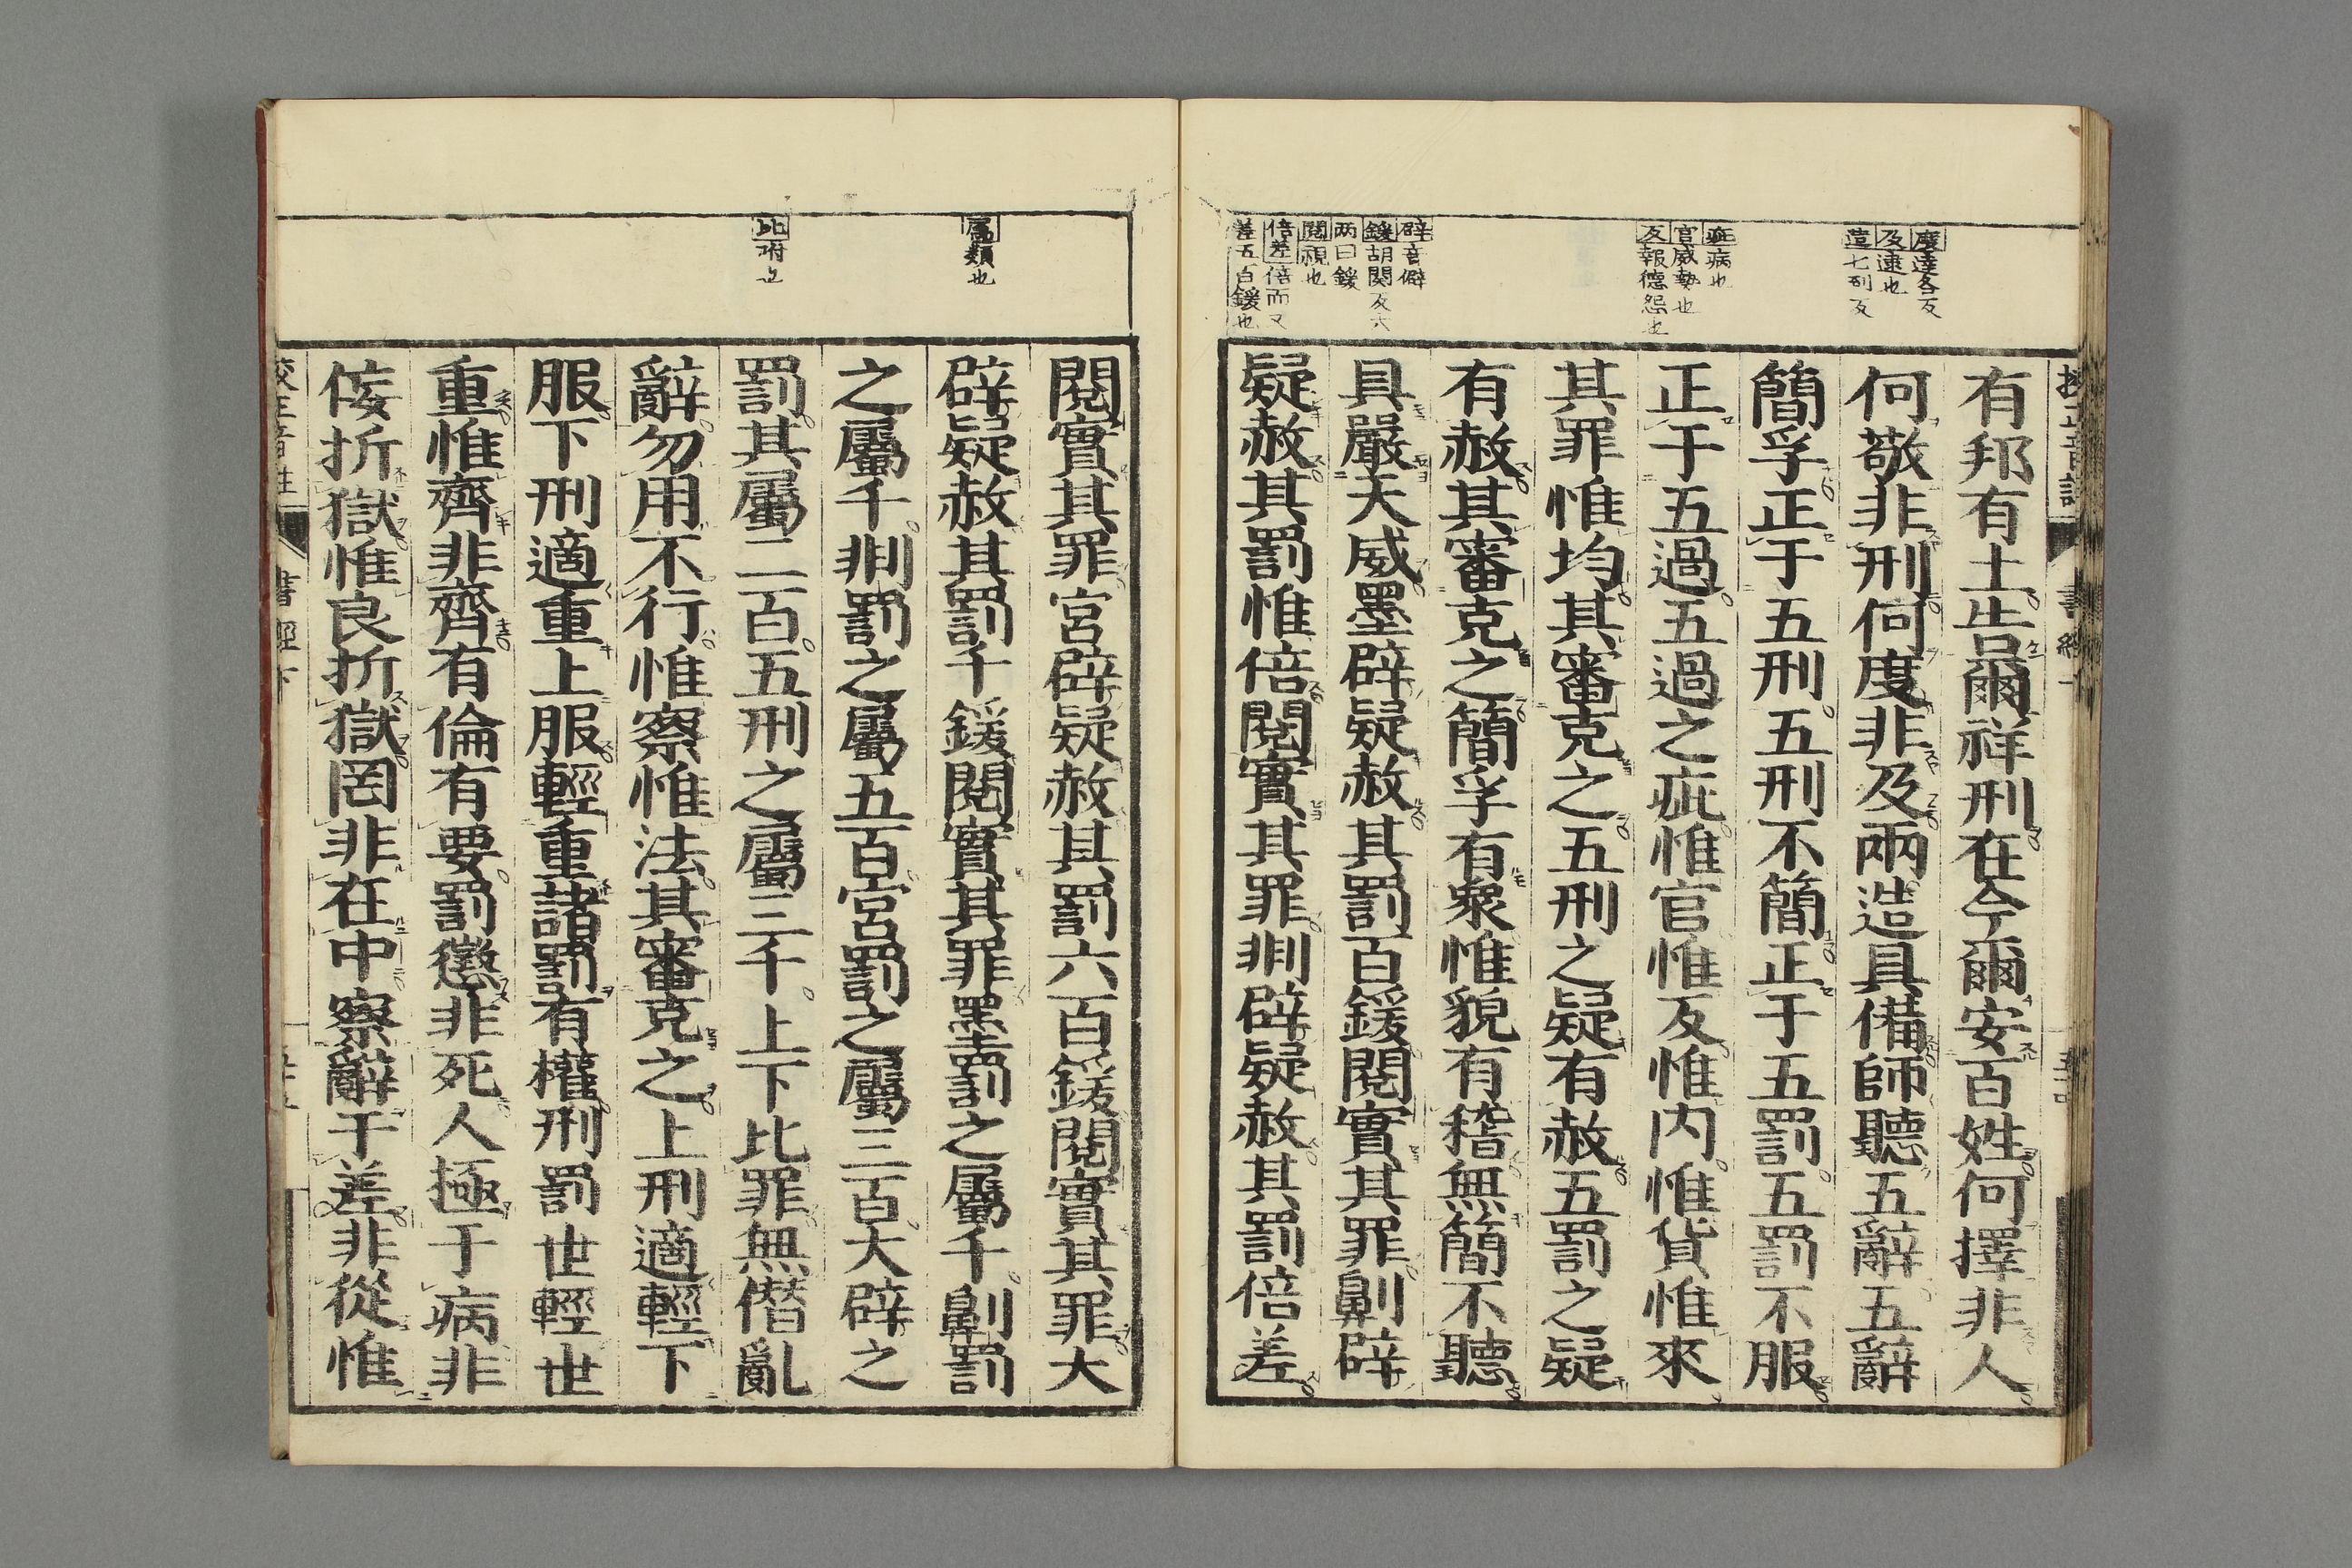 度達各反
及逮也
造七到反
疵病也
官威勢也
反報德怨也
辟音僻
鍰胡関反六
两曰鍰
閱視也
倍差倍而又
差五百鍰也
有邦有土告爾祥刑在今爾安百姓何擇非人
何敬非刑何度非及兩造具備師聽五辭五辭
簡孚正于五刑五刑不簡正于五罰五罰不服
正于五過五過之疵惟官惟反惟内惟貨惟來
其罪惟均其審克之五刑之疑有赦五罰之疑
有赦其審克之簡孚有衆惟貌有稽無簡不聽
具嚴天威墨辟疑赦其罰百鍰閱實其罪劓辟
疑赦其罰惟倍閱實其罪剕辟疑赦其罰倍差
屬類也
比附也
閱實其罪宮辟疑赦其罰六百鍰閱實其罪大
辟疑赦其罰千鍰閱實其罪墨罰之屬千劓罰
之屬千剕罰之屬五百宮罰之屬三百大辟之
罰其屬二百五刑之屬三千上下比罪無僭亂
辭勿用不行惟察惟法其審克之上刑適輕下
服下刑適重上服輕重諸罰有權刑罰世輕世
重惟齊非齊有倫有要罰懲非死人極于病非
佞折獄惟良折獄罔非在中察辭于差非從惟
校正音註 書經下